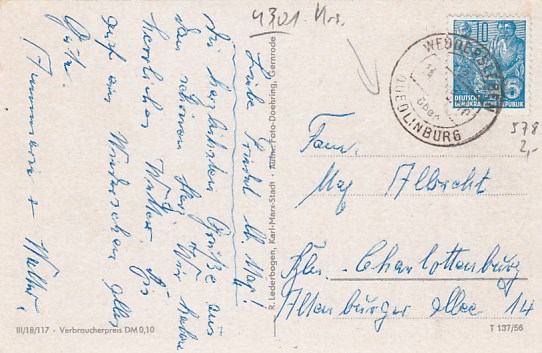 4301
Liebe Friedel u. Max!
Die herzlichsten Grüße aus
dem schönen Harz. Wir haben
herrliches Wetter. Bis
auf ein Wiedersehen alles
Gute
Annemarie + Walter.
R. Lederbogen, Karl-Marx-Stadt - Aufn. Foto-Doehring, Gernrode
III/18/117 - Verbraucherpreis DM 0,10
10
DEUTSCHE
DEMOKRATISCHE REPUBLIK
WEDDERSLEBEN
über
QUEDLINBURG
578
2,-
Fam.
Max Albrecht
Bln. - Charlottenburg
Altenburger Allee 14
T 137/56